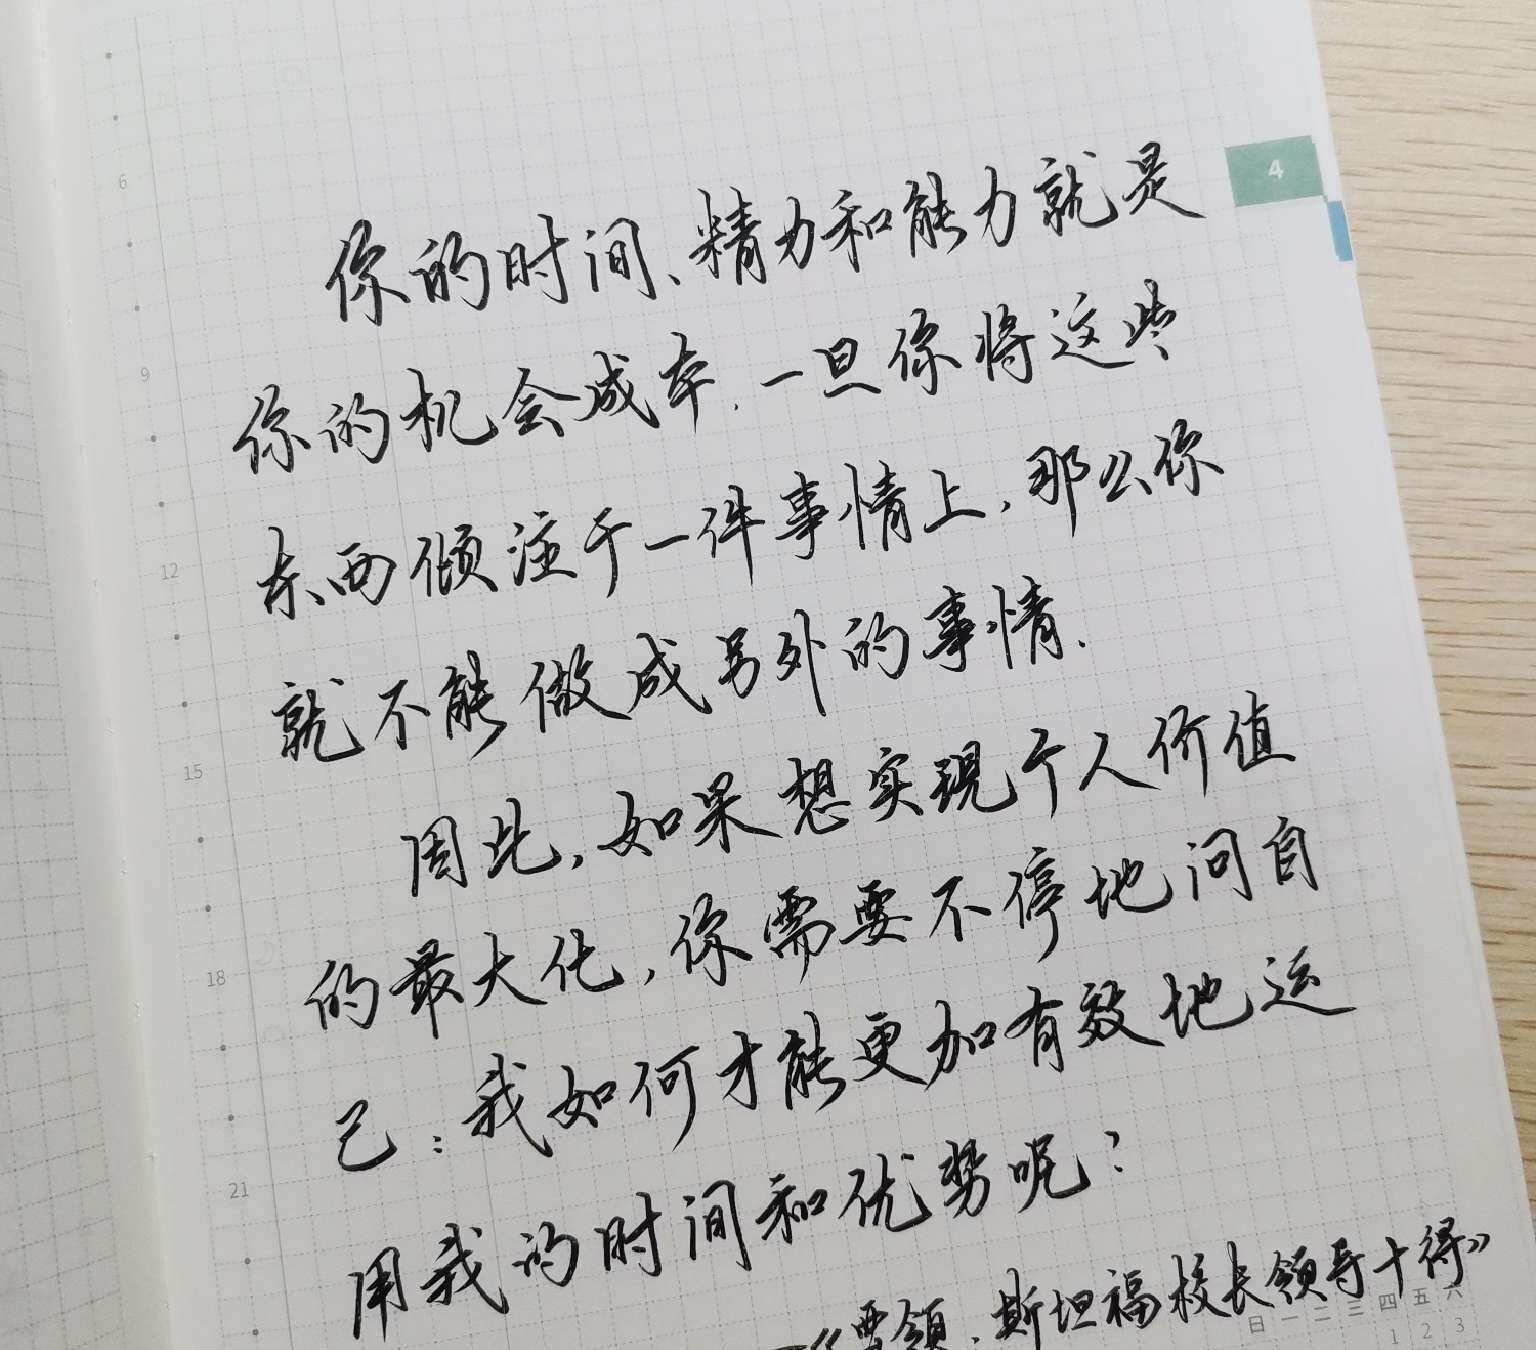 4
6
你的时间、精力和能力就是
9
你的机会成本.一旦你将这些
12
东西倾注于一件事情上,那么你
就不能做成另外的事情.
15
因此,如果想实现个人价值
18
的最大化,你需要不停地问自
己:我如何才能更加有效地运
21
用我的时间和优势呢?
—《要领.斯坦福校长领导十得》
日 一 二 三 四 五 六
1 2 3